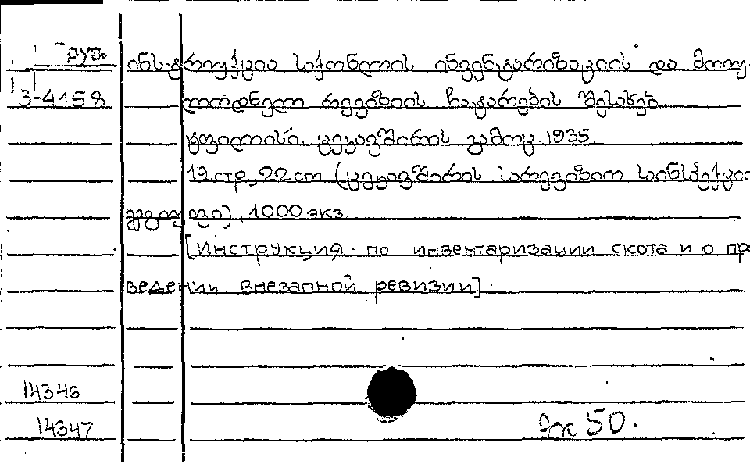 груз.
3-4158
ინსტრუქცია საქონლის ინვენტარიზაციის და მოულ-
ლოდნელი რევიზიის ჩატარების შესახებ
ტფილისი, ცეკავშირის გამოც. 1935
12 стр., 22 cm (ცეკავშირის სარევიზიო საინსპექციო
1000 экз.
[Инструкция по инвентаризации скота и о про-
ведении внезапной ревизии].
14346
14347
50.